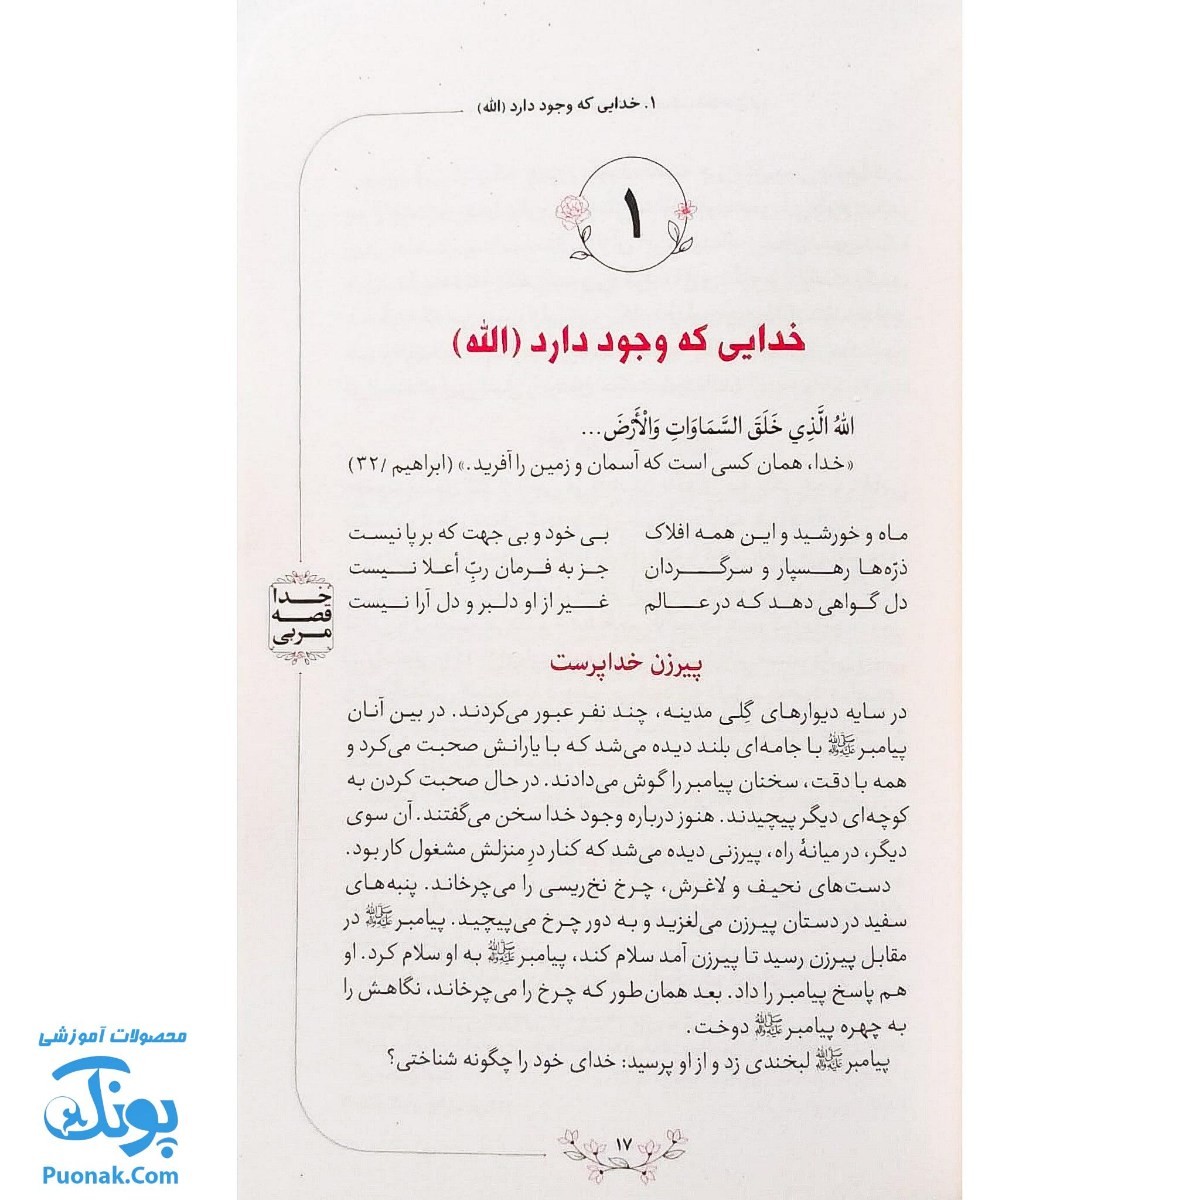 ۱. خدایی که وجود دارد (الله)
۱
خدایی که وجود دارد (الله)
اللهُ الَّذِي خَلَقَ السَّمَاوَاتِ وَالْأَرْضَ...
«خدا، همان کسی است که آسمان و زمین را آفرید.» (ابراهیم /۳۲)
ماه و خورشید و این همه افلاک بی خود و بی جهت که بر پا نیست
ذرّه‌ها رهسپار و سرگردان جز به فرمان ربّ أعلا نیست
دل گواهی دهد که در عالم غیر از او دلبر و دل آرا نیست
خدا
قصه
مربی
پیرزن خداپرست
در سایه دیوارهای گِلی مدینه، چند نفر عبور می‌کردند. در بین آنان
پیامبر ﷺ با جامه‌ای بلند دیده می‌شد که با یارانش صحبت می‌کرد و
همه با دقت، سخنان پیامبر را گوش می‌دادند. در حال صحبت کردن به
کوچه‌ای دیگر پیچیدند. هنوز درباره وجود خدا سخن می‌گفتند. آن سوی
دیگر، در میانهٔ راه، پیرزنی دیده می‌شد که کنار درِ منزلش مشغول کار بود.
دست‌های نحیف و لاغرش، چرخ نخ‌ریسی را می‌چرخاند. پنبه‌های
سفید در دستان پیرزن می‌لغزید و به دور چرخ می‌پیچید. پیامبر ﷺ در
مقابل پیرزن رسید تا پیرزن آمد سلام کند، پیامبر ﷺ به او سلام کرد. او
هم پاسخ پیامبر را داد. بعد همان‌طور که چرخ را می‌چرخاند، نگاهش را
به چهره پیامبر ﷺ دوخت.
پیامبر ﷺ لبخندی زد و از او پرسید: خدای خود را چگونه شناختی؟
۱۷
محصولات آموزشی
پونک
Puonak.Com